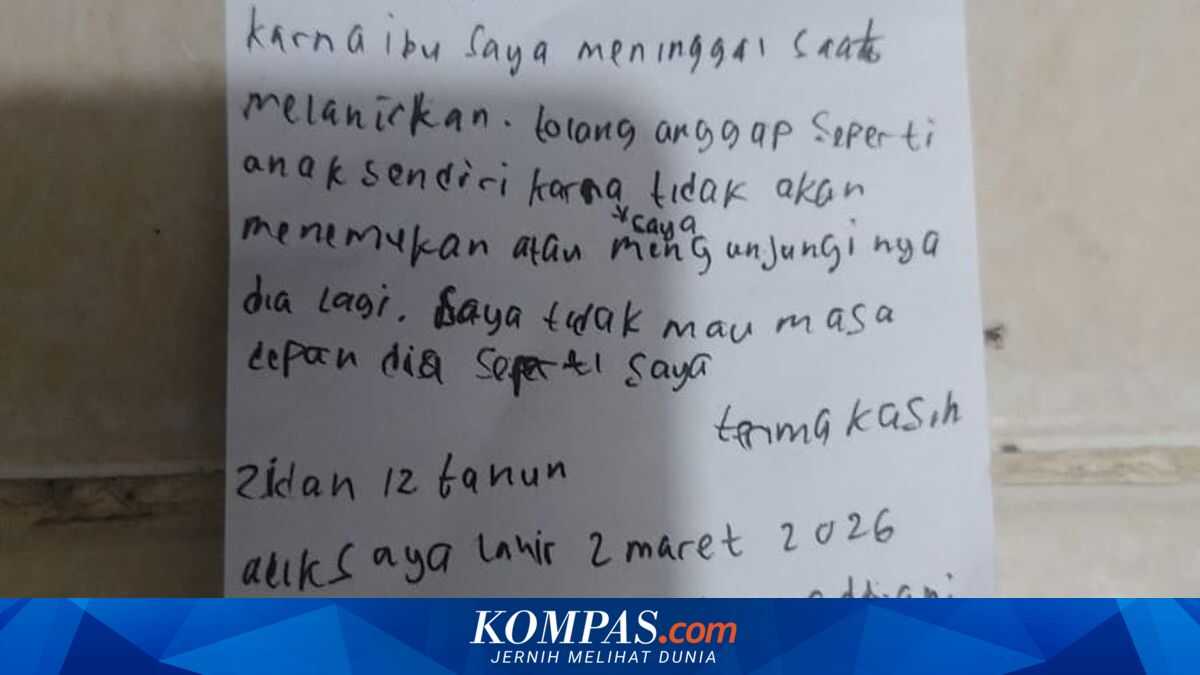 karna ibu saya meninggal saat
melahirkan. tolong anggap seperti
anak sendiri karna tidak akan
*saya
menemukan atau mengunjungi nya
dia lagi. Saya tidak mau masa
depan dia seperti saya
terima kasih
Zidan 12 tahun
adik saya lahir 2 maret 2026
KOMPAS.com
JERNIH MELIHAT DUNIA